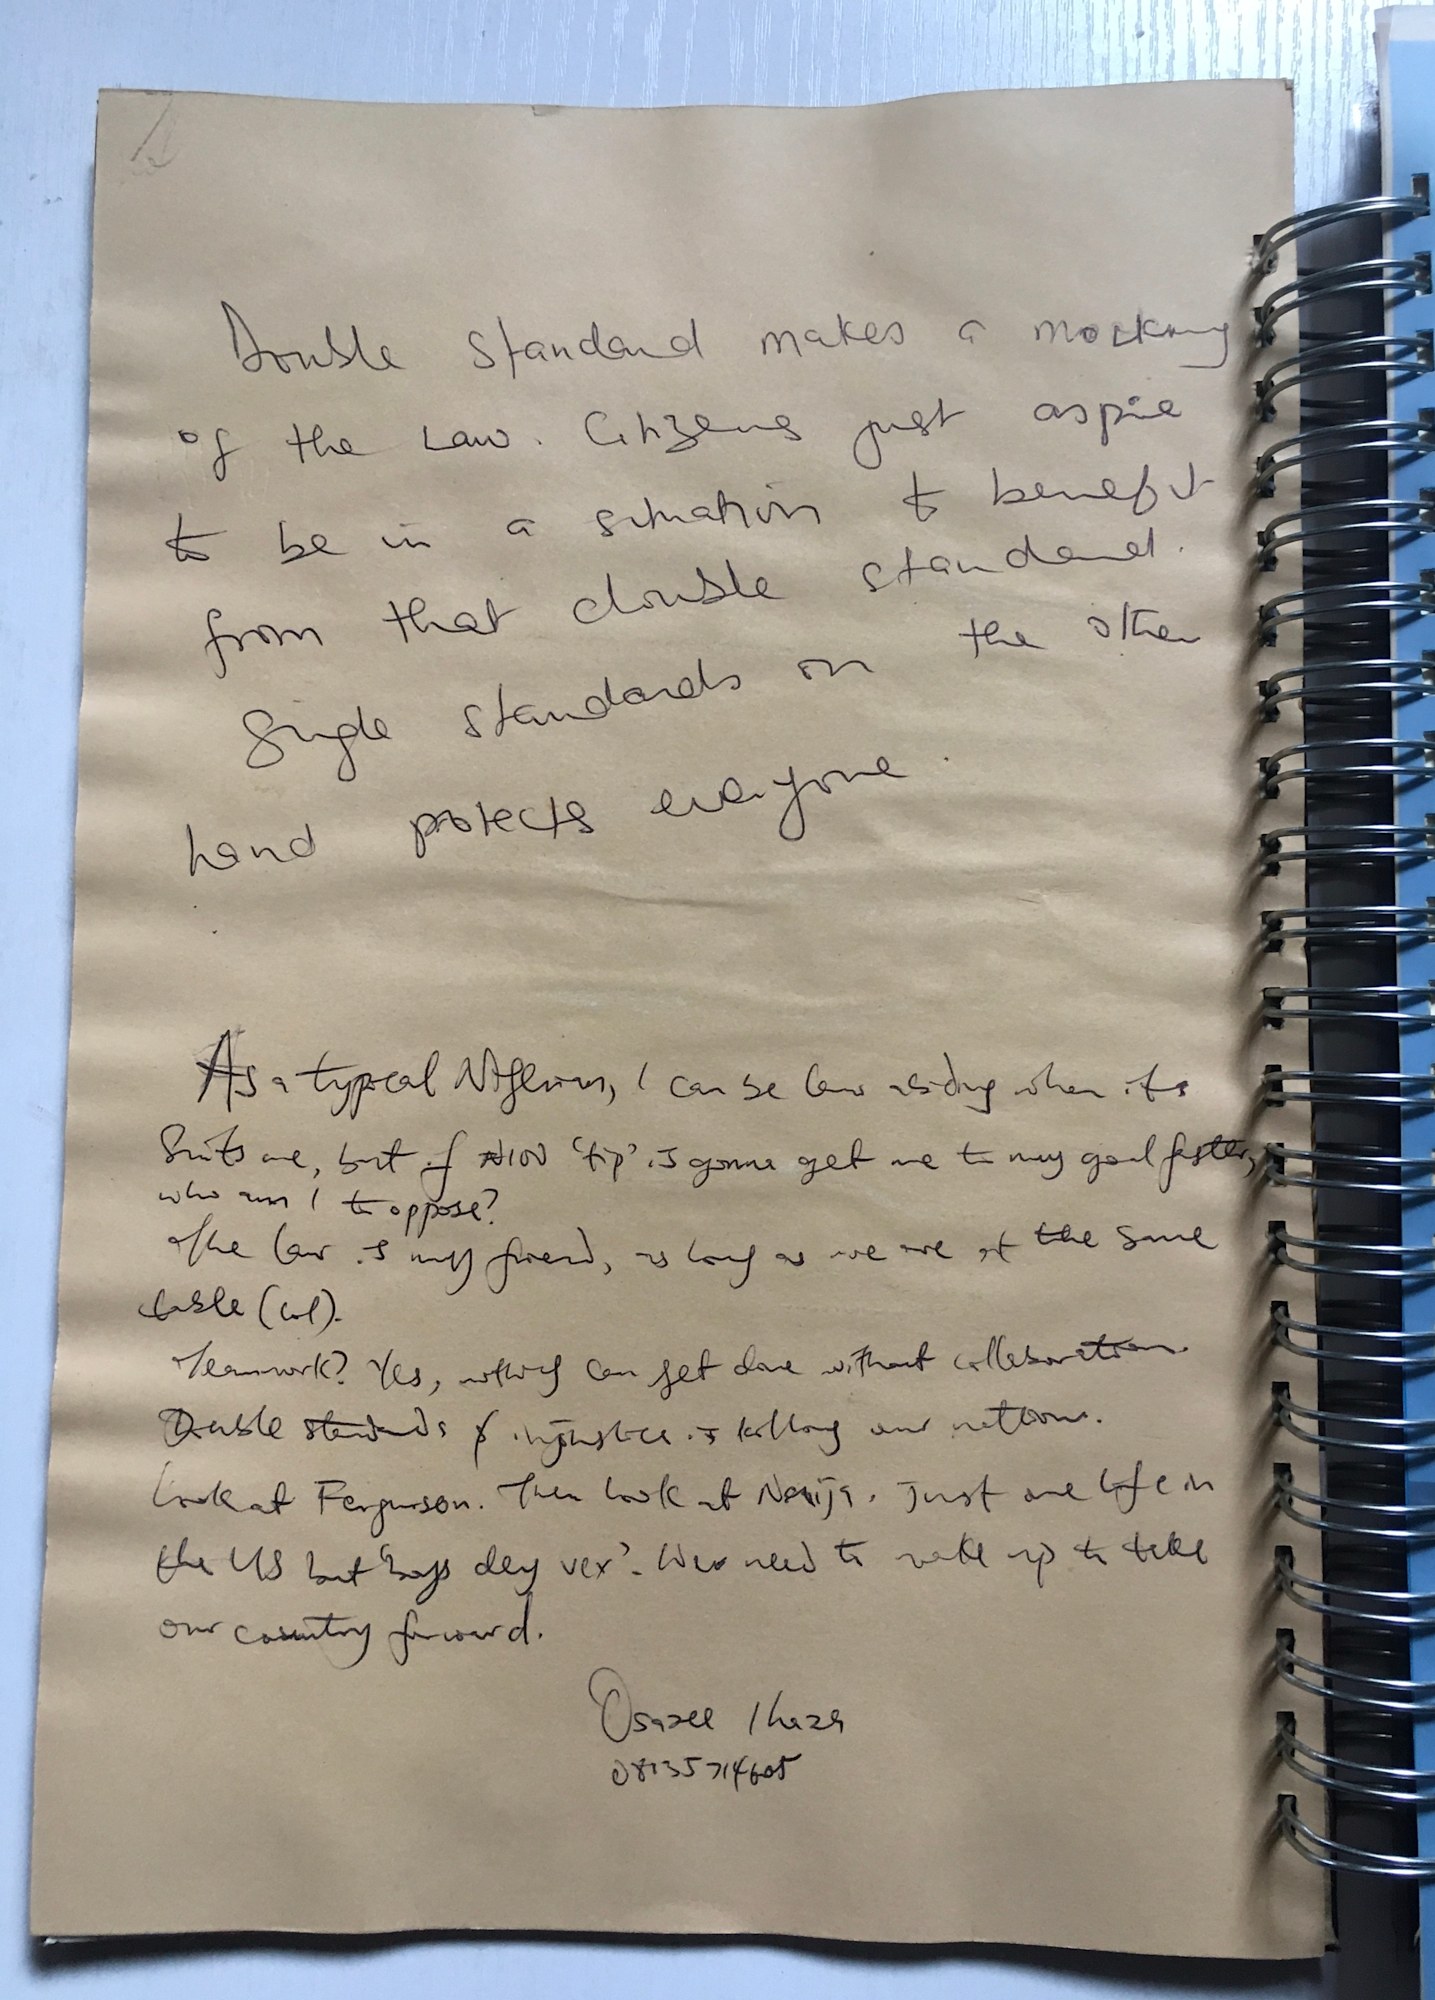 Double standard makes a mockery
of the law. Citizens just aspire
to be in a situation to benefit
from that double standard.
Single standards on the other
hand protects everyone.
As a typical Nigerian, I can be law abiding when its
Suits me, but if ₦100 'tip' is gonna get me to my goal faster,
who am I to oppose?
The law is my friend, as long as we are at the same
table (lol).
Teamwork? Yes, nothing can get done without collaboration.
Double standards & injustice is killing our nation.
Look at Ferguson. Then look at Naija. Just one life in
the US but 'boys dey vex'. We need to wake up to take
our country forward.
Osazee